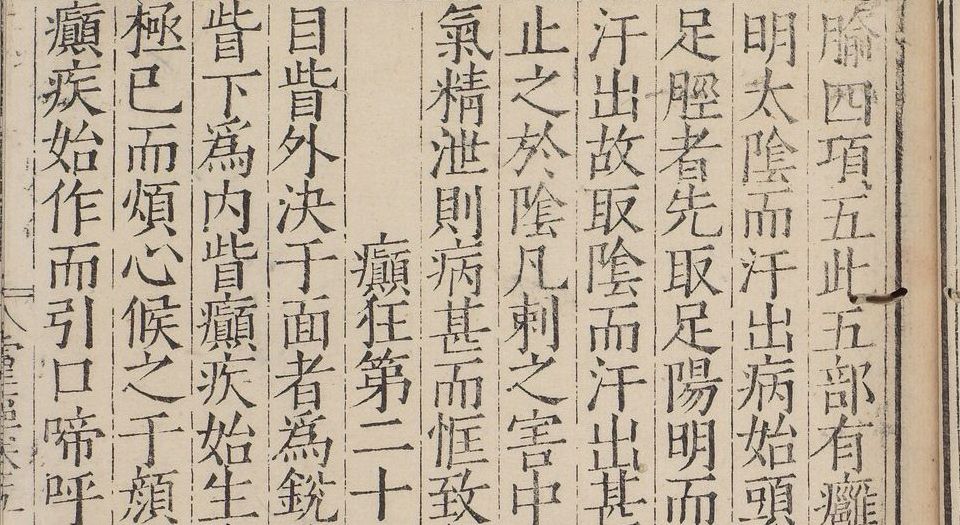 腧四項五此五部有癰
明太陰而汗出病始頭
足脛者先取足陽明而
汗出故取陰而汗出甚
止之於陰凡刺之害中
氣精泄則病甚而恇致
癲狂第二十
目眥外決于面者為銳
眥下為内眥癲疾始生
極已而煩心候之于顏
癲疾始作而引口啼呼